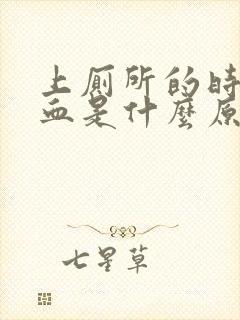 上厕所的时
血是什麼原
七星草